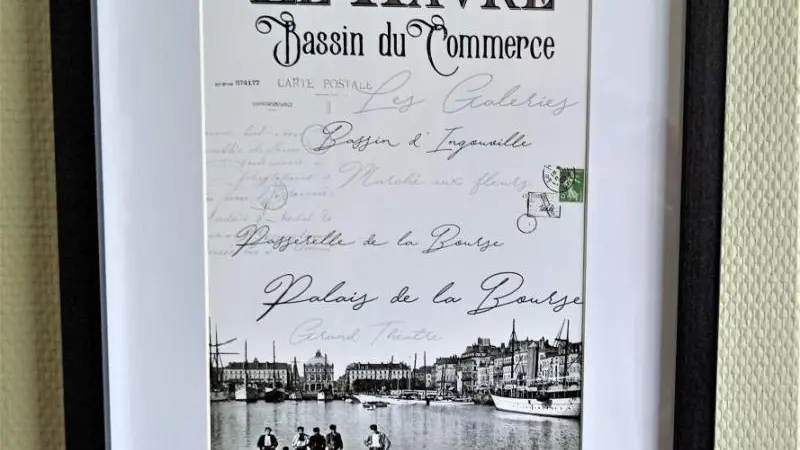 LE HAVRE
Bassin du Commerce
074177
CARTE POSTALE
CORRESPONDANCE
Les Galeries
Bassin d'Ingouville
Marché aux fleurs
Passerelle de la Bourse
Palais de la Bourse
Grand Théatre